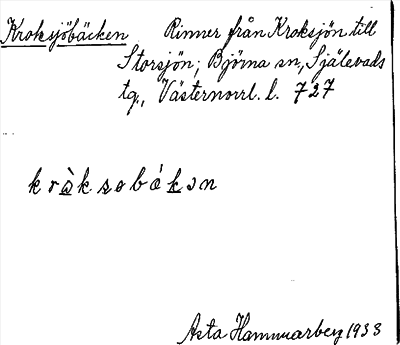 Kroksjöbäcken Rinner från Kroksjön till
Storsjön; Björna sn, Själevads
tg., Västernorrl. l. 727
kròksobákən
Asta Hammarberg 1933